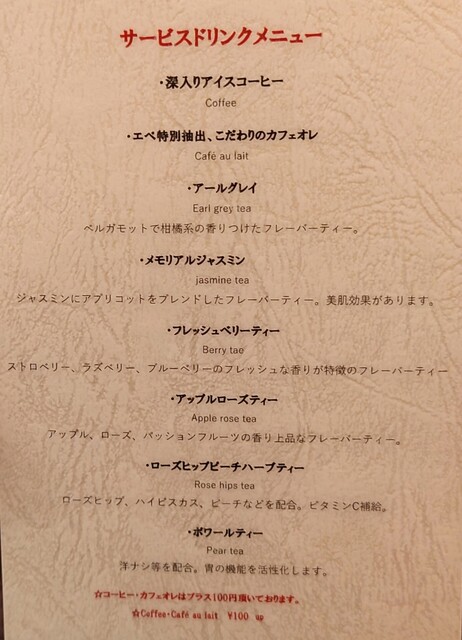 サービスドリンクメニュー
・深入りアイスコーヒー
Coffee
・エペ特別抽出、こだわりのカフェオレ
Café au lait
・アールグレイ
Earl grey tea
ベルガモットで柑橘系の香りつけたフレーバーティー。
・メモリアルジャスミン
jasmine tea
ジャスミンにアプリコットをブレンドしたフレーバーティー。美肌効果があります。
・フレッシュベリーティー
Berry tae
ストロベリー、ラズベリー、ブルーベリーのフレッシュな香りが特徴のフレーバーティー
・アップルローズティー
Apple rose tea
アップル、ローズ、パッションフルーツの香り上品なフレーバーティー。
・ローズヒップピーチハーブティー
Rose hips tea
ローズヒップ、ハイビスカス、ピーチなどを配合。ビタミンC補給。
・ポワールティー
Pear tea
洋ナシ等を配合。胃の機能を活性化します。
☆コーヒー・カフェオレはプラス100円頂いております。
☆Coffee・Café au lait ¥100 up